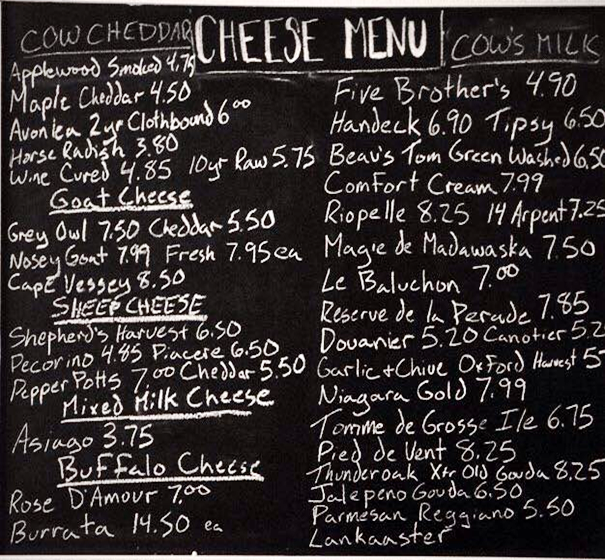 COW CHEDDAR
CHEESE MENU
COW'S MILK
Applewood Smoked 4.75
Maple Cheddar 4.50
Avonlea 2yr Clothbound 6.00
Horse Radish 3.80
Wine Cured 4.85 10yr Raw 5.75
Goat Cheese
Grey Owl 7.50 Cheddar 5.50
Nosey Goat 7.99 Fresh 7.95 ea
Cape Vessey 8.50
SHEEP CHEESE
Shepherd's Harvest 6.50
Pecorino 4.85 Piacere 6.50
Pepper Potts 7.00 Cheddar 5.50
Mixed Milk Cheese
Asiago 3.75
Buffalo Cheese
Rose D'Amour 7.00
Burrata 14.50 ea
Five Brother's 4.90
Handeck 6.90 Tipsy 6.50
Beau's Tom Green Washed 6.50
Comfort Cream 7.99
Riopelle 8.25 14 Arpent 7.25
Magie de Madawaska 7.50
Le Baluchon 7.00
Reserve de la Perade 7.85
Douanier 5.20 Canotier 5.2
Garlic + Chive Oxford Harvest 5
Niagara Gold 7.99
Tomme de Grosse Ile 6.75
Pied de Vent 8.25
Thunderoak Xtr Old Gouda 8.25
Jalepeno Gouda 6.50
Parmesan Reggiano 5.50
Lankaaster